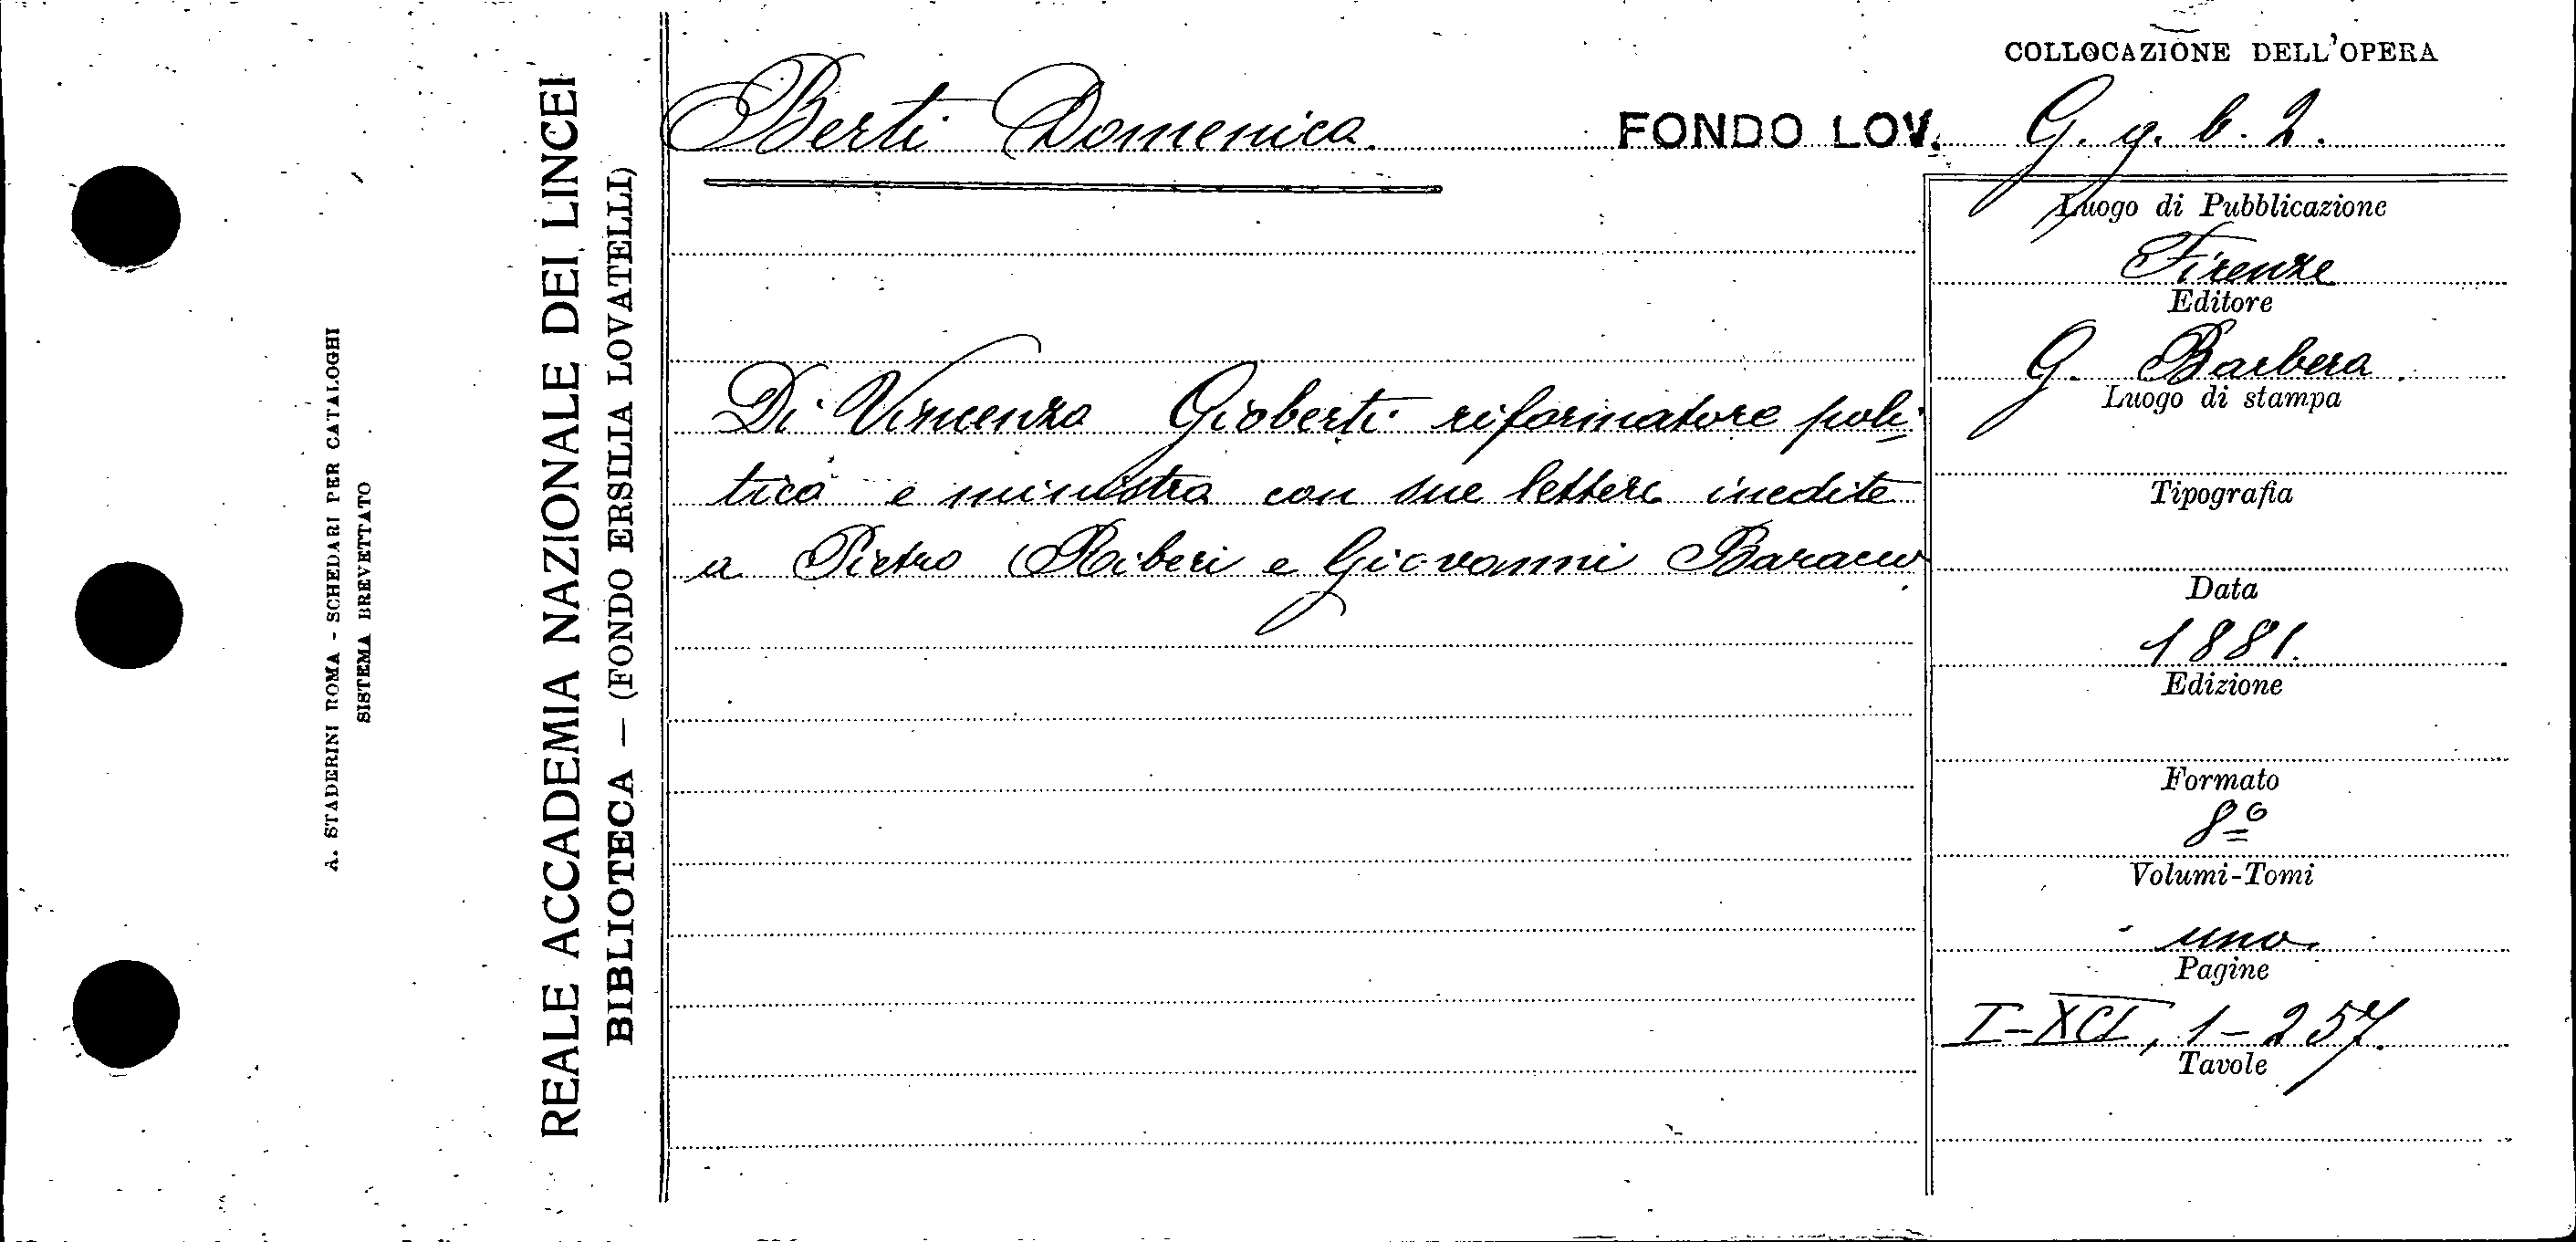 A. STADERINI ROMA - SCHEDARI PER CATALOGHI
SISTEMA BREVETTATO
REALE ACCADEMIA NAZIONALE DEI LINCEI
BIBLIOTECA — (FONDO ERSILIA LOVATELLI)
Berti Domenico.
FONDO LOV.
Di Vincenzo Gioberti riformatore poli-
tico e ministro con sue lettere inedite
a Pietro Riberi e Giovanni Baracco
COLLOCAZIONE DELL'OPERA
G. g. b. 2.
Luogo di Pubblicazione
Firenze
Editore
G. Barbera.
Luogo di stampa
Tipografia
Data
1881.
Edizione
Formato
8º
Volumi-Tomi
uno
Pagine
I-XCI, 1-257.
Tavole